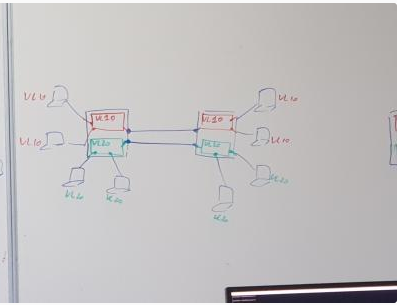 VL10
VL10
VL10
VL10
VL10
VL10
VL20
VL20
VL20
VL20
VL20
VL20